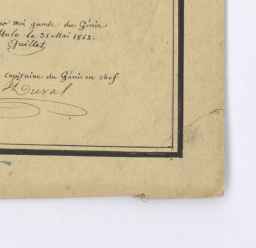 par moi garde du Génie
le 31 Mai 1852.
Guillet
Capitaine du Génie en chef
Duval